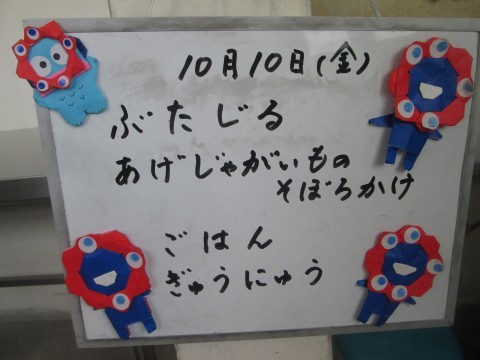 10月10日(金)
ぶたじる
あげじゃがいもの
そぼろかけ
ごはん
ぎゅうにゅう